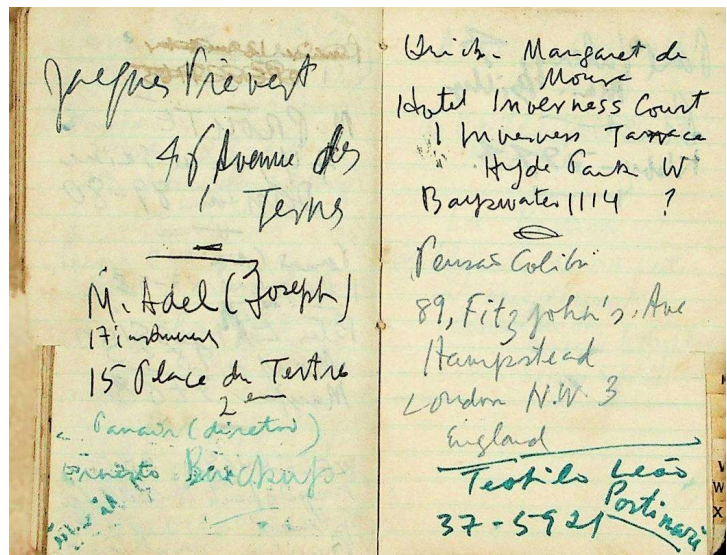 Jacques Prévert
46 Avenue des
Ternes
M. Adel (Joseph)
15 Place du Tertre
2 em
Panair (diretor)
Margaret de
Hotel Inverness Court
1 Inverness Terrace
" Hyde Park W
Bayswater 1114 ?
Colibri
89, Fitzjohn's. Ave
Hampstead
London N.W. 3
England
Teofilo Leão
Portinari
37-5921
W
X